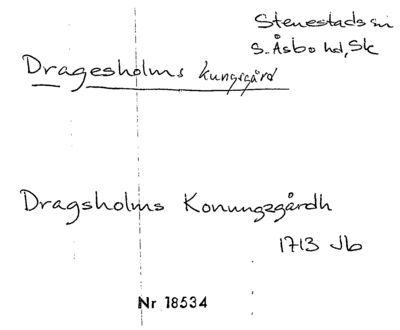 Stenestads sn
S. Åsbo hd, Sk
Dragesholms kungsgård
Dragsholms Konungzgårdh
1713 Jb
Nr 18534